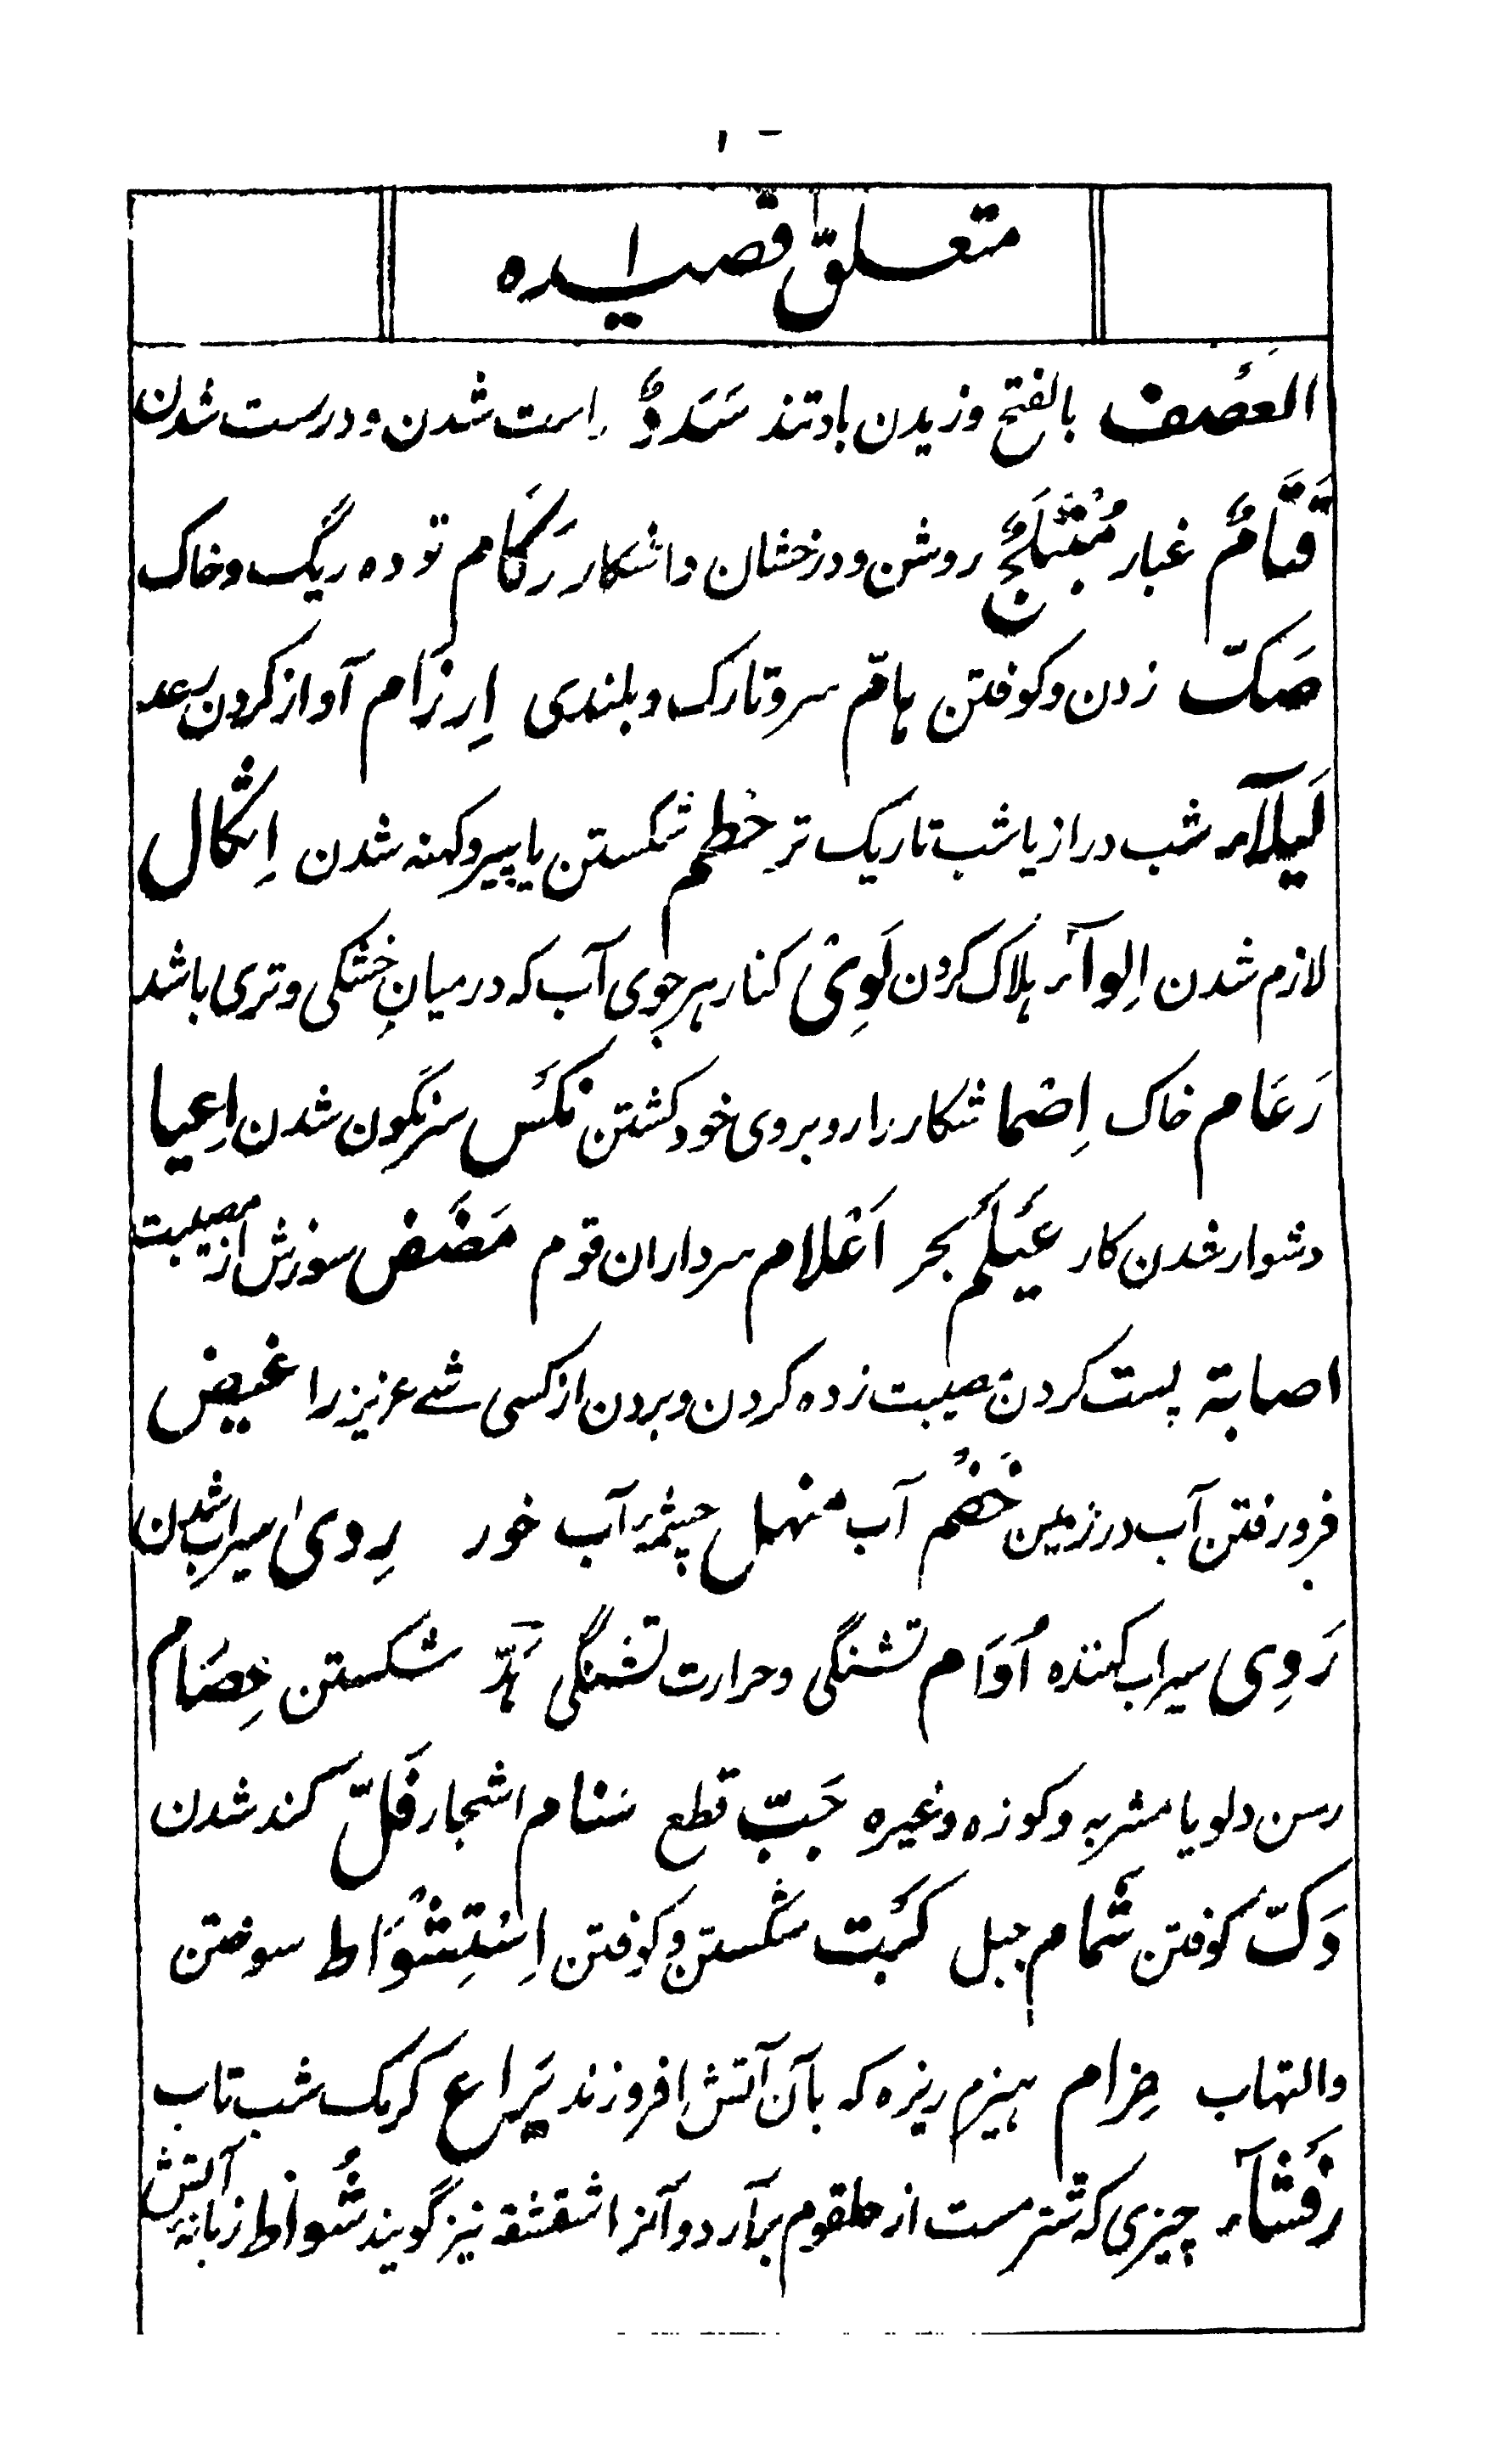 متعلق قصیده
العَصف بالفتح وزیدن باد تند سَدَدٌ راست شدن و درست شدن
قَتَامٌ غبار مُبْتَلَجٌ روشن و درخشان و اشکار رَکَام توده ریگ و خاک
صَکّ زدن و کوفتن ہامّ سر و تارک و بلندی اِرزَام آواز کردن رعد
لَیلآء شب دراز یا شب تاریک تر حَطم شکستن یا پیر و کهنه شدن اِشکال
لازم شدن اِلوآء ہلاک کردن لَوِیْ کنار ہر جوی آب که درمیانِ خشکی و تری باشد
رَغَام خاک اِصْما شکار را روبروی خود کشتن نکَس سرنگون شدن اِعیا
دشوار شدن کار عَیلَم بحر اَعْلام سرداران قوم مَضَض سوزش از مصیبت
اصابة پست کردن مصیبت زده کردن و بردن از کسی شے عزیز را غیض
فرو رفتن آب در زمین خَضم آب منہل چشمۂ آب خور رِویٰ سیراب شدن
رَوِی سیراب کننده اُوَام تشنگی و حرارت تشنگی ہَدّ شکستن عِصَام
رسن دلو یا مشربه و کوزه و غیره جَبّ قطع سَنام اشجار فَلّ کند شدن
دَکّ کوفتن شَمام جبل کَبت شکستن و کوفتن اِسْتِشْوَاط سوختن
والتہاب ضِرام ہیزم ریزه که بآن آتش افروزند یَراع کرمک شب تاب
رَقشآء چیزی که شتر مست از حلقوم برآرد و آنرا شقشقه نیز گویند شُواظ زبانۂ آتش